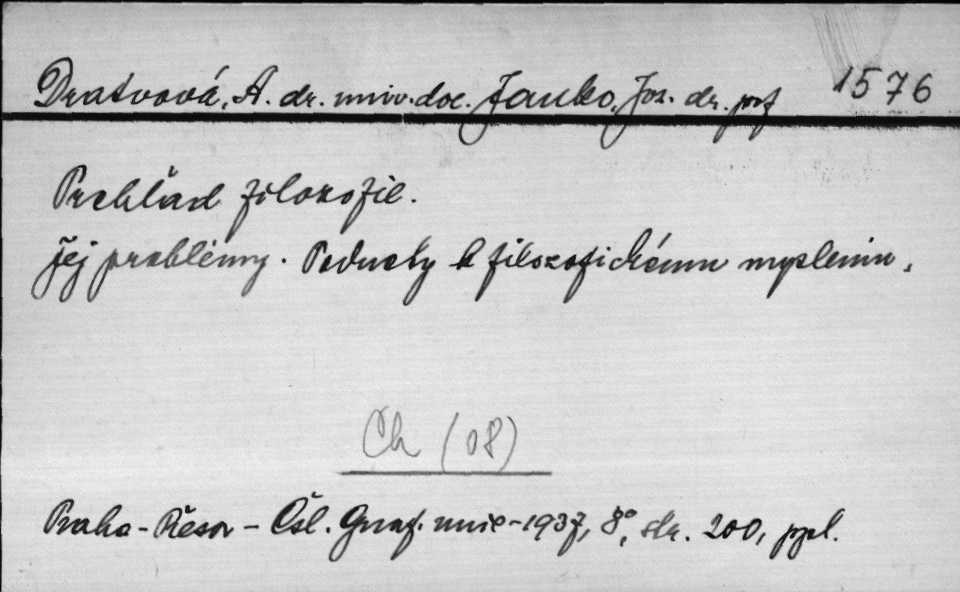 Dratvová, A. dr. univ. doc. Janko, Joz. dr. prof 1576
Prehľad filozofie.
Jej problémy. Podnety k filozofickému mysleniu.
Čh (08)
Praha - Prešov - Čsl. Graf. unie - 1937, 8°, str. 200, ppl.